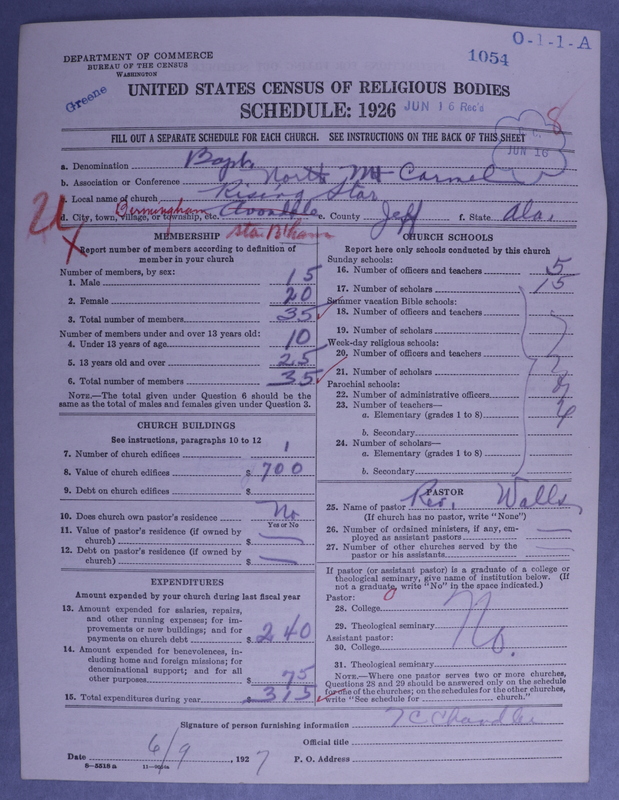 O-1-1-A
1054
DEPARTMENT OF COMMERCE
BUREAU OF THE CENSUS
WASHINGTON
Greene
UNITED STATES CENSUS OF RELIGIOUS BODIES
SCHEDULE: 1926 JUN 16 Rec's
8
FILL OUT A SEPARATE SCHEDULE FOR EACH CHURCH. SEE INSTRUCTIONS ON THE BACK OF THIS SHEET
JUN 16
a. Denomination Bapt
b. Association or Conference North Mt Carmel
c. Local name of church Rising Star
d. City, town, village, or township, etc. Birmingham Avondale e. County Jeff f. State Ala.
sta B'ham
MEMBERSHIP
Report number of members according to definition of
member in your church
Number of members, by sex:
1. Male 15
2. Female 20
3. Total number of members 35
Number of members under and over 13 years old:
4. Under 13 years of age 10
5. 13 years old and over 25
6. Total number of members 35
NOTE.—The total given under Question 6 should be the
same as the total of males and females given under Question 3.
CHURCH BUILDINGS
See instructions, paragraphs 10 to 12
7. Number of church edifices 1
8. Value of church edifices $ 700
9. Debt on church edifices $
10. Does church own pastor's residence No
Yes or No
11. Value of pastor's residence (if owned by
church) $ —
12. Debt on pastor's residence (if owned by
church) $ —
EXPENDITURES
Amount expended by your church during last fiscal year
13. Amount expended for salaries, repairs,
and other running expenses; for im-
provements or new buildings; and for
payments on church debt $ 240
14. Amount expended for benevolences, in-
cluding home and foreign missions; for
denominational support; and for all
other purposes $ 75
15. Total expenditures during year $ 315
CHURCH SCHOOLS
Report here only schools conducted by this church
Sunday schools:
16. Number of officers and teachers 5
17. Number of scholars 15
Summer vacation Bible schools:
18. Number of officers and teachers
19. Number of scholars
Week-day religious schools:
20. Number of officers and teachers
21. Number of scholars
Parochial schools:
22. Number of administrative officers
23. Number of teachers—
a. Elementary (grades 1 to 8)
b. Secondary
24. Number of scholars—
a. Elementary (grades 1 to 8)
b. Secondary
PASTOR
25. Name of pastor Rev. Walls
(If church has no pastor, write "None")
26. Number of ordained ministers, if any, em-
ployed as assistant pastors —
27. Number of other churches served by the
pastor or his assistants —
If pastor (or assistant pastor) is a graduate of a college or
theological seminary, give name of institution below. (If
not a graduate, write "No" in the space indicated.)
Pastor:
28. College
29. Theological seminary No.
Assistant pastor:
30. College
31. Theological seminary
NOTE.—Where one pastor serves two or more churches,
Questions 28 and 29 should be answered only on the schedule
for one of the churches; on the schedules for the other churches,
write "See schedule for church."
Signature of person furnishing information T C Chandler
Official title
Date 6/9, 1927 P. O. Address
8-5518a